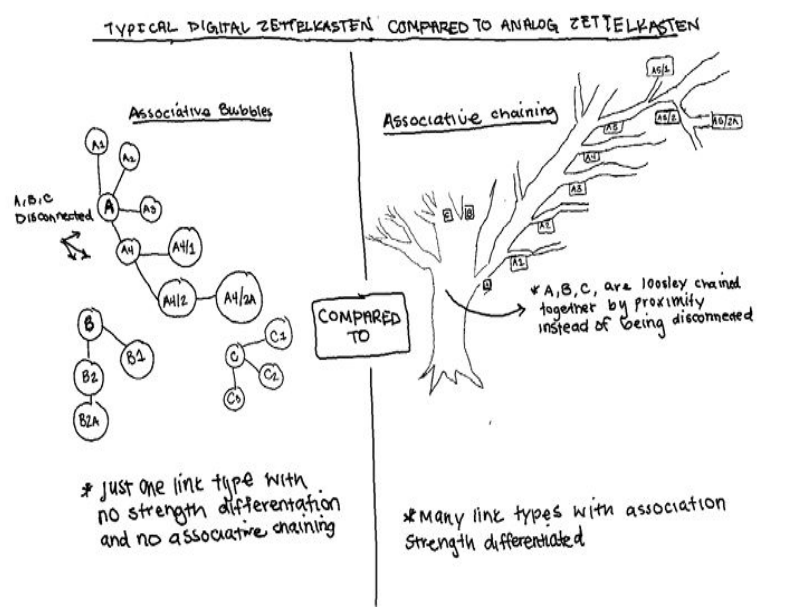 TYPICAL DIGITAL ZETTELKASTEN COMPARED TO ANALOG ZETTELKASTEN
Associative Bubbles
A1
A2
A
A3
A,B,C
Disconnected
A4
A4/1
A4/2
A4/2A
B
B1
B2
B2A
C
C1
C2
C3
* Just one link type with
no strength differentation
and no associative chaining
COMPARED
TO
Associative chaining
A5/1
A5/2
A5/2A
A5
A4
A3
A2
A1
A
C
B
* A,B,C, are loosley chained
together by proximity
instead of being disconnected
* Many link types with association
strength differentiated